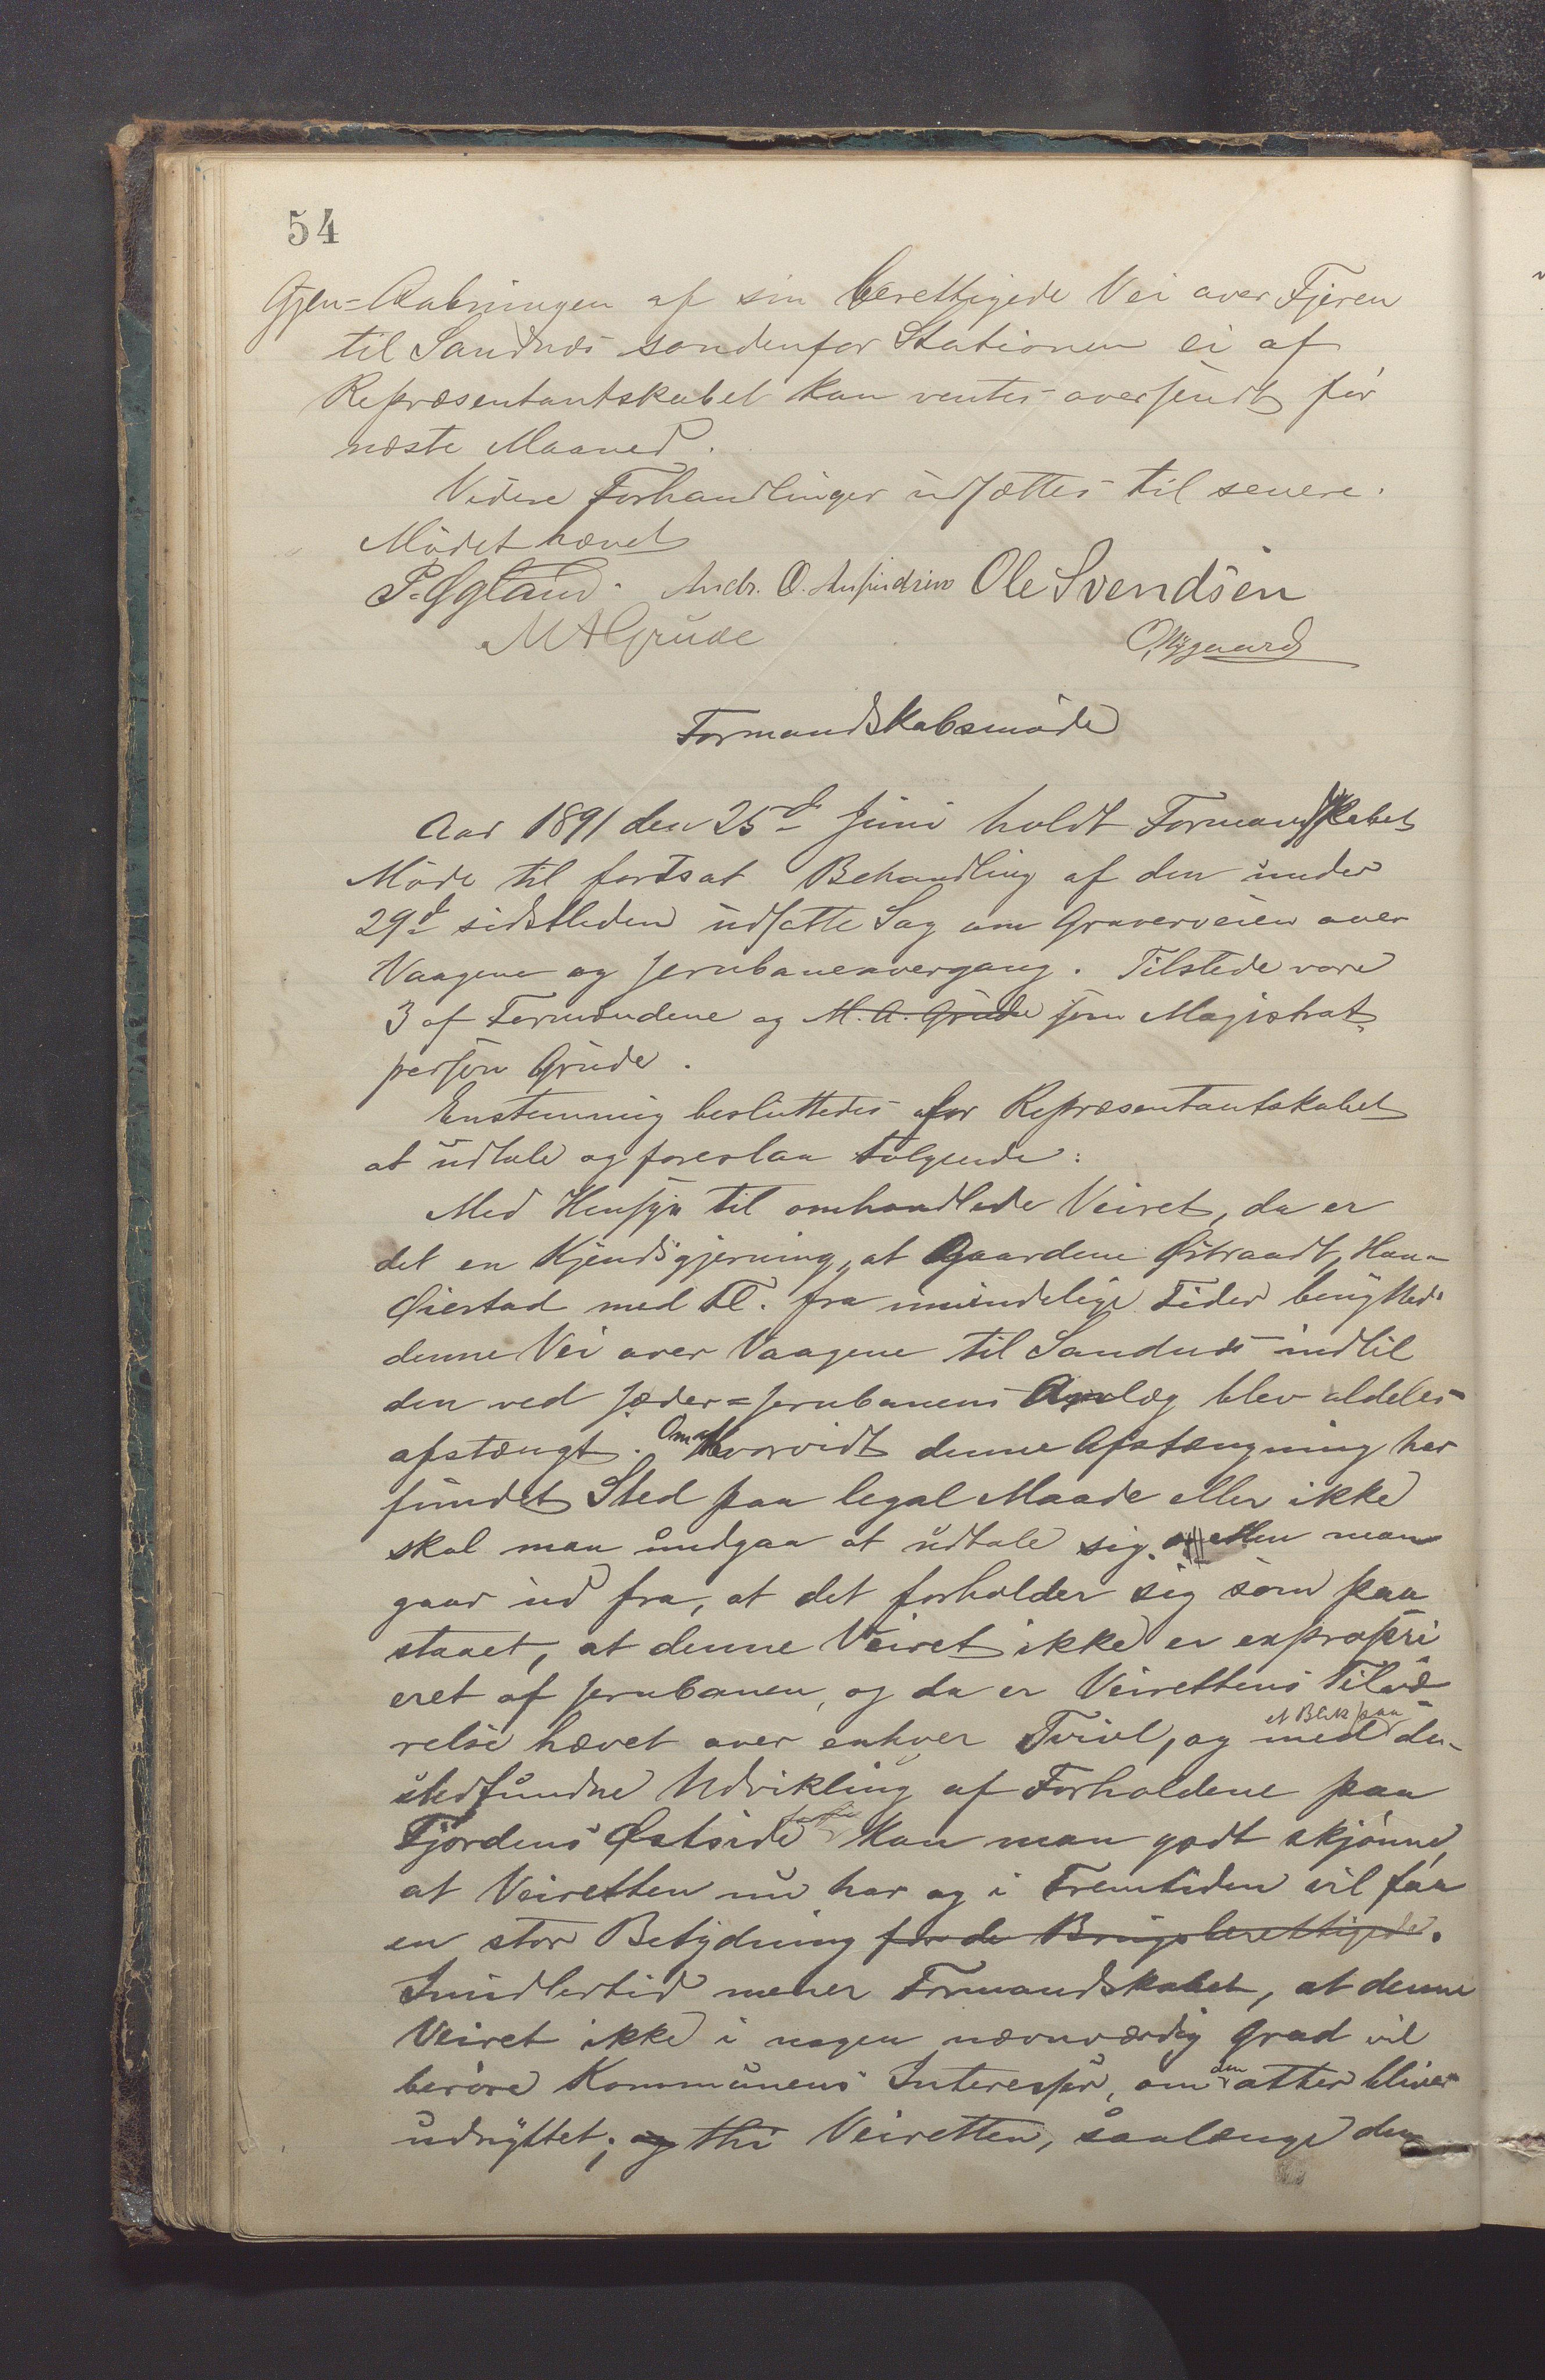 54
Gjen=Aabningen af sin berettigede Vei over Fjæren
til Sandnæs søndenfor Stationen ei af
Repræsentantskabet kan ventes oversendt før
næste Maaned.
Videre Forhandlinger udsættes til senere.
Mødet hævet
P. Ggland. O. Ole Svendsen
M A Grude O Nygaard
Formandskabsmøde
Aar 1891 den 25d Juni holdt Formandskabet
Møde til fortsat Behandling af den under
29d sidstleden udsatte Sag om Graverveien over
Vaagene og Jernbaneovergang. Tilstede vare
3 af Formændene og M. A. Grude som Magistrat,
person Grude.
Enstemmig besluttedes for Repræsentantskabet
at udtale og foreslaa følgende:
Med Hensyn til omhandlede Veiret, da er
det en Kjendsgjerning, at Gaardene Østraadt, Han-
Øiestad med Fl. fra umindelige Tider benyttede
denne Vei over Vaagene til Sandnæs indtil
den ved Jæder=Jernbanens Anlæg blev aldeles
afstængt. Om at Hvorvidt denne Afstængning har
fundet Sted paa legal Maade eller ikke
skal man undgaa at udtale sig. Men man
gaar ud fra, at det forholder sig som paa
staaet, at denne Veiret ikke er expropri
eret af Jernbanen, og da er Veirettens Tilvæ
relse hævet over enhver Tvivl, og med et Blik paa den
stedfundne Udvikling af Forholdene paa
Fjordens Østside kan man godt skjønne,
at Veiretten nu har og i Fremtiden vil faa
en stor Betydning for de Brugsberettigede.
Imidlertid mener Formandskabet, at denne
Veiret ikke i nogen nævnværdig Grad vil
berøre Kommunens Interesser, om den atter bliver
udnyttet; og thi Veiretten, saalænge den